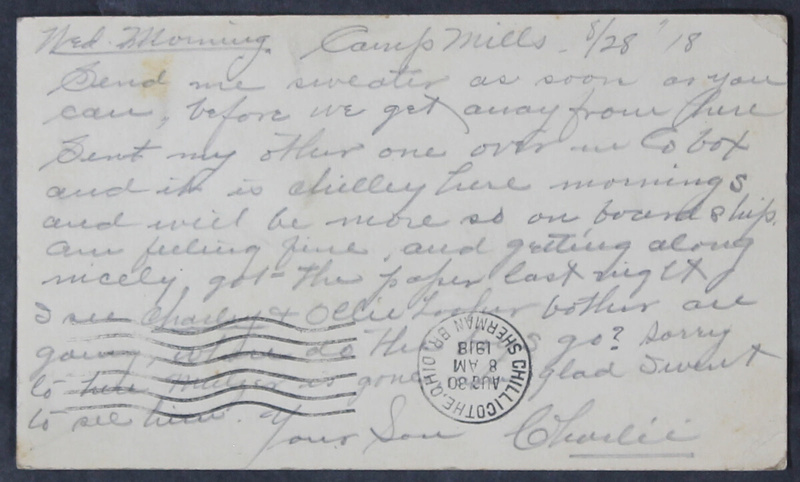 Wed. Morning. Camp Mills - 8/28 "18
Send me sweater as soon as you
can, before we get away from here
Sent my other one over in Co box
and it is chilley here mornings
and will be more so on board ship.
Am feeling fine, and getting along
nicely, got the paper last night
I see Charley & Ollie bother are
going, where do they go? Sorry
to hear is gone glad I went
to see him. Your Son Charlie
CHILLICOTHE, OHIO
SHERMAN BR.
AUG 30
8 AM
1918